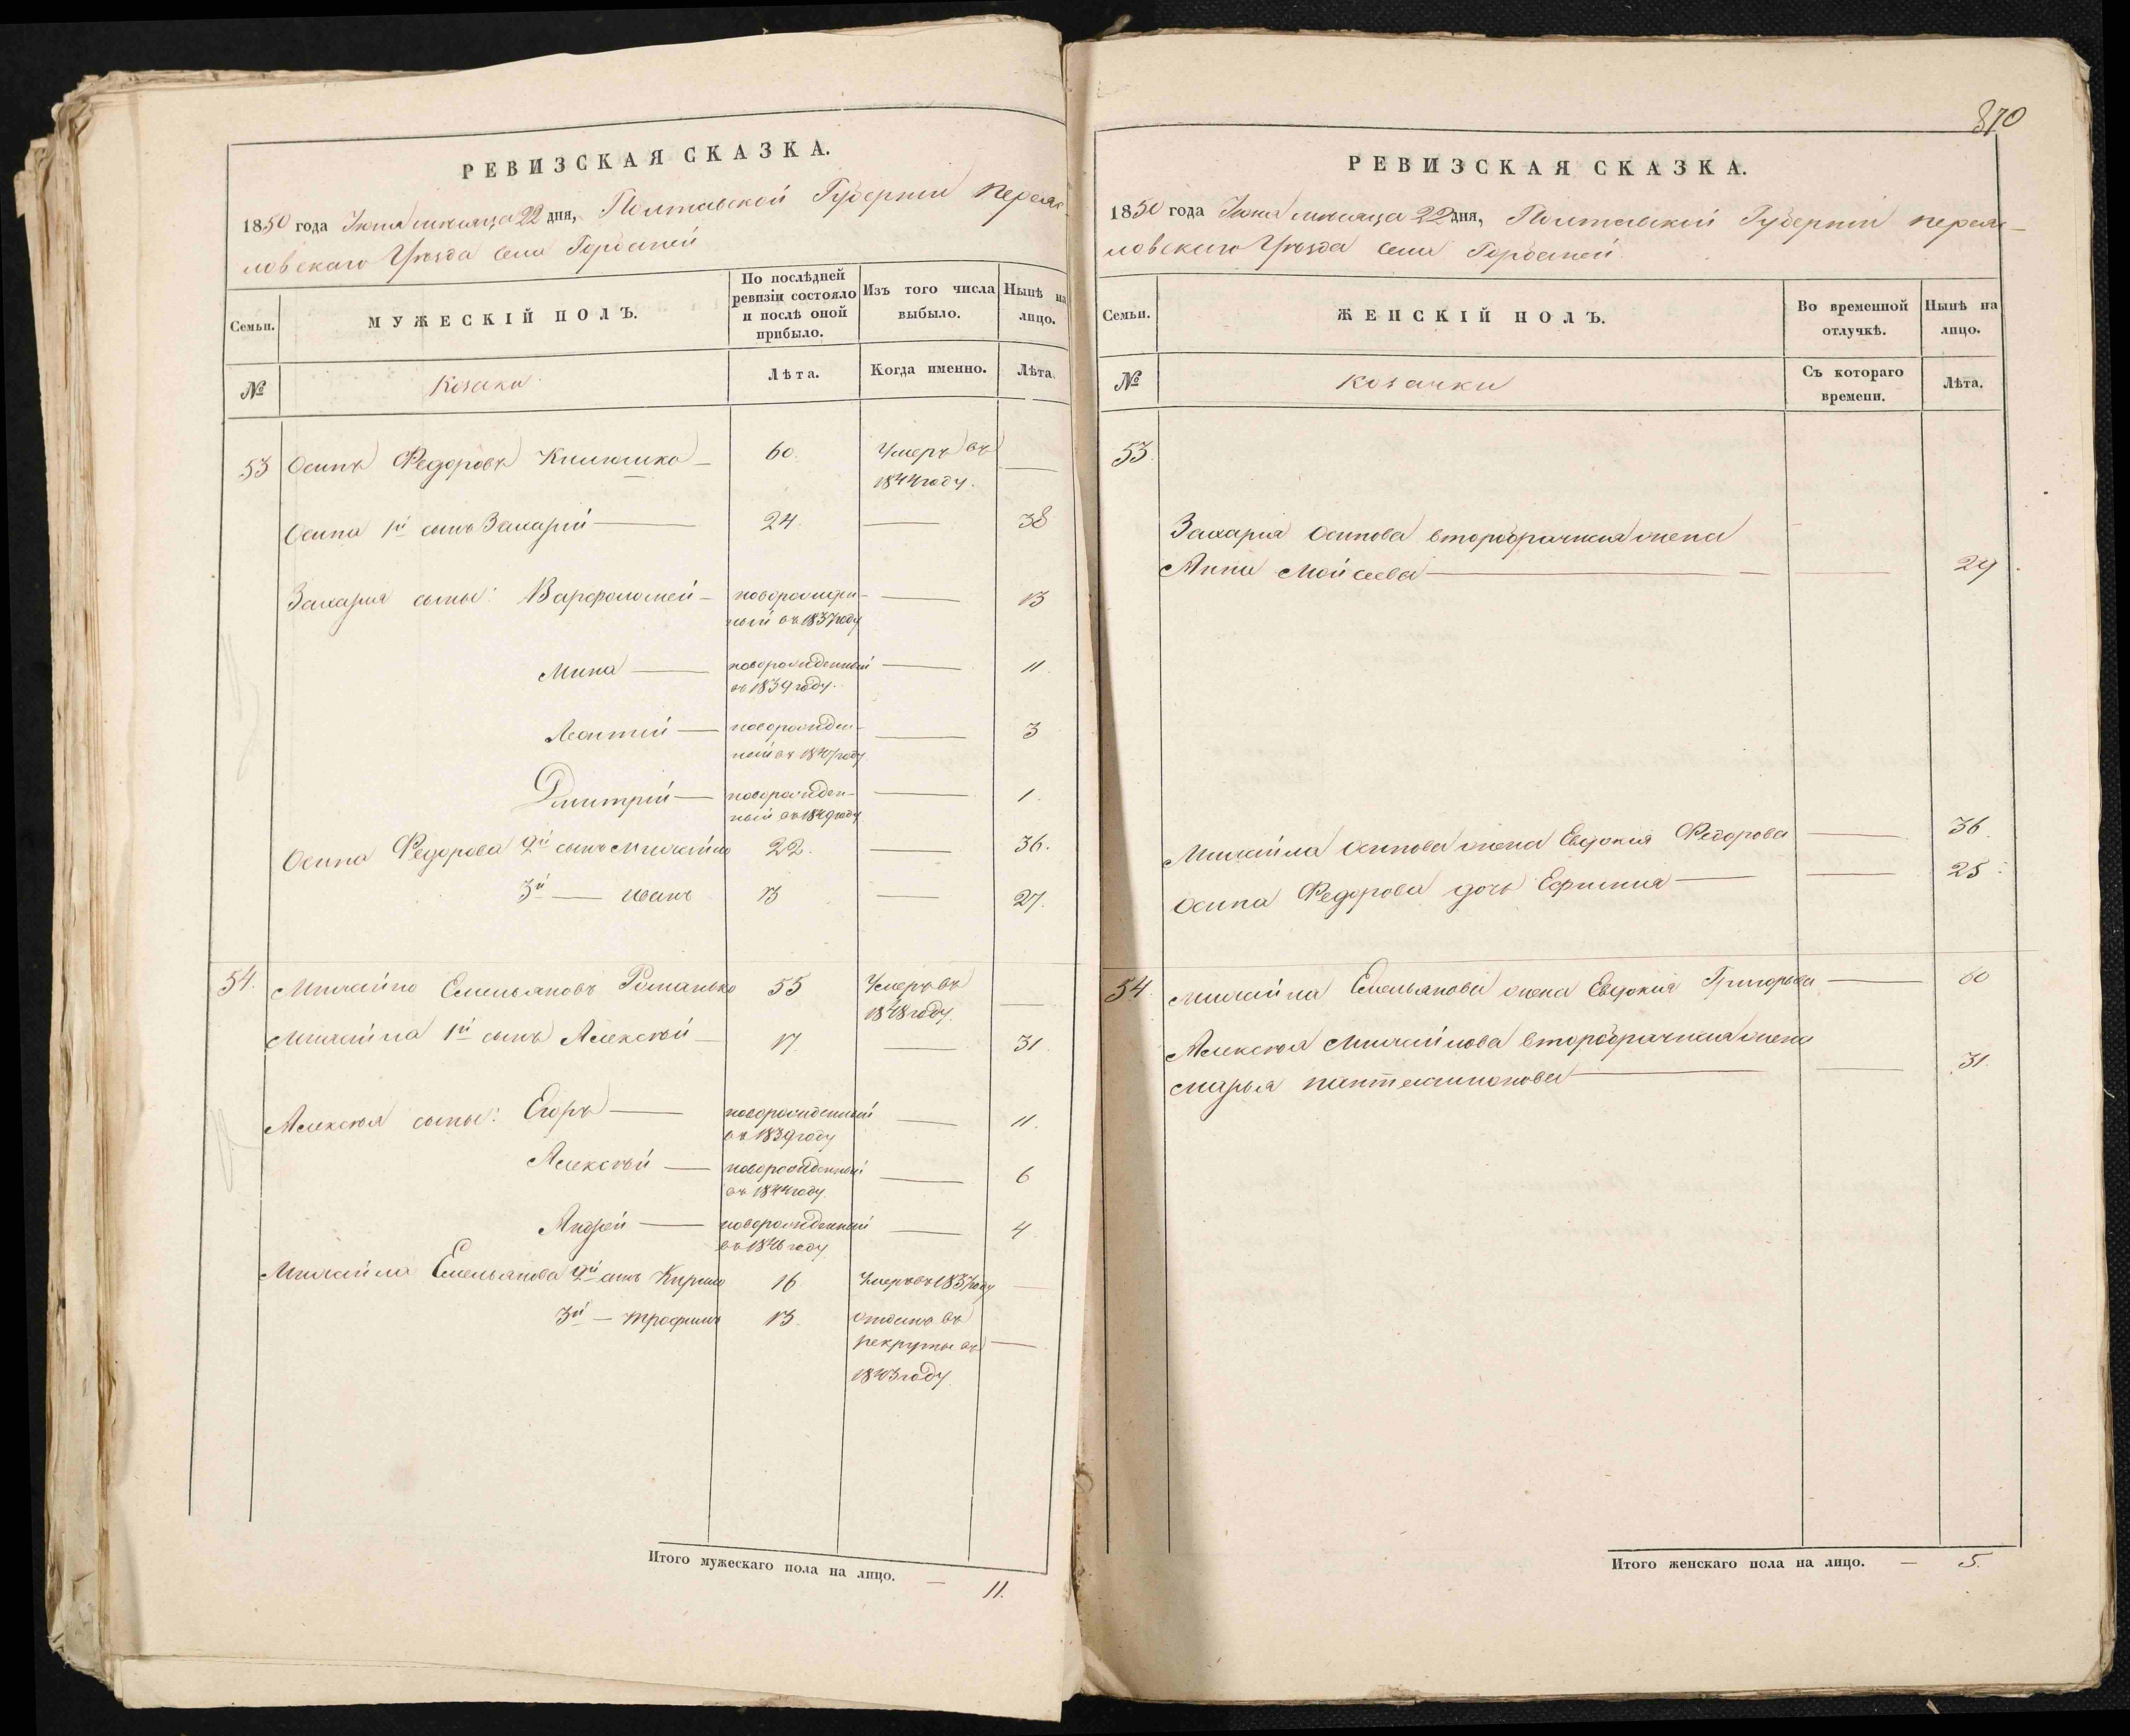 РЕВИЗСКАЯ СКАЗКА.
1850 года Іюня мѣсяца 22 дня, Полтавской Губерніи Переяс-
ловскаго Уѣзда села
Семьи.
МУЖЕСКІЙ ПОЛЪ.
По послѣдней ревизіи состояло и послѣ оной прибыло.
Изъ того числа выбыло.
Нынѣ на лицо.
№
Козаки
Лѣта.
Когда именно.
Лѣта.
53 Осипъ Федоровъ 60. Умеръ въ
1844 году. —
Осипа 1й сынъ Захарій — 24. — 38
Захарія сыны: Варфоломей — новорожден-
ный въ 1837 году — 13
Мина — новорожденный
въ 1839 году. — 11.
Леонтій — новорожден-
ный въ 1847 году — 3
Дмитрій — новорожден-
ный въ 1849 году — 1.
Осипа Федорова 2й сынъ Михайло 22. — 36.
3й — Иванъ 13 — 27.
54. Михайло Емельяновъ Романько 55 Умеръ въ
1848 году. —
Михайла 1й сынъ Алексѣй — 17. — 31.
Алексѣя сыны: Егоръ — новорожденный
въ 1839 году — 11.
Алексѣй — новорожденный
въ 1844 году. — 6
Андрей — новорожденный
въ 1846 году — 4
Михайла Емельянова 2й сынъ Кирило 16 Умеръ въ 1837 году —
3й — Трофимъ 13. отданъ въ
рекруты въ —
1843 году
Итого мужескаго пола на лицо. — 11.
870
РЕВИЗСКАЯ СКАЗКА.
1850 года Іюня мѣсяца 22 дня, Полтавской Губерніи Переяс-
ловскаго Уѣзда села
Семьи.
ЖЕНСКІЙ ПОЛЪ.
Во временной отлучкѣ.
Нынѣ на лицо.
№
Козачки
Съ котораго времени.
Лѣта.
53.
Захарія Осипова второбрачная жена
Анна Моисеева — — 29.
Михайла Осипова жена Евдокія Федорова — 36.
Осипа Федорова дочь Ефимия — — 25.
54. Михайла Емельянова жена Евдокия Григорьева — 60
Алексѣя Михайлова второбрачная жена
Марья Пантелимонова — — 31.
Итого женскаго пола на лицо. — 5.